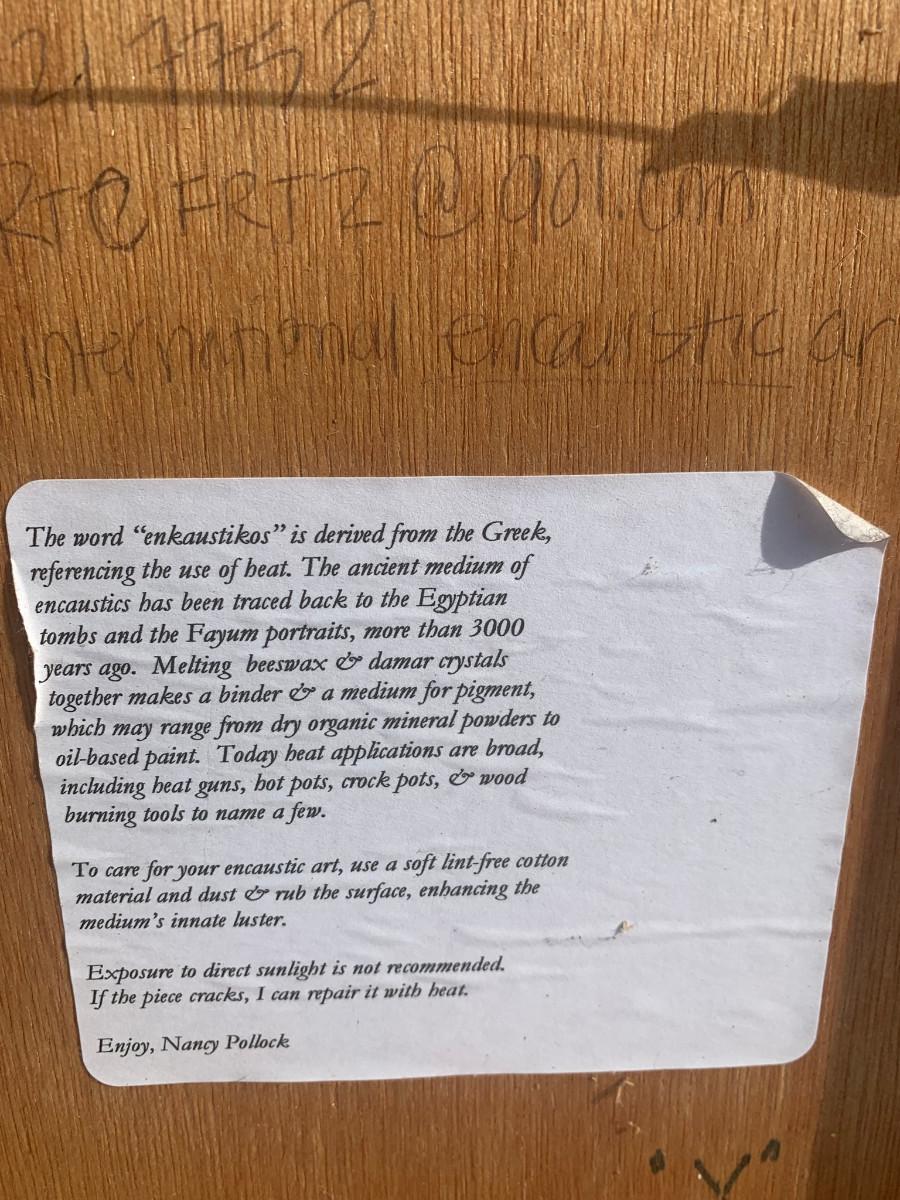 217752
RTCFRTZ@aol.com
international encaustic ar
The word “enkaustikos” is derived from the Greek,
referencing the use of heat. The ancient medium of
encaustics has been traced back to the Egyptian
tombs and the Fayum portraits, more than 3000
years ago. Melting beeswax & damar crystals
together makes a binder & a medium for pigment,
which may range from dry organic mineral powders to
oil-based paint. Today heat applications are broad,
including heat guns, hot pots, crock pots, & wood
burning tools to name a few.
To care for your encaustic art, use a soft lint-free cotton
material and dust & rub the surface, enhancing the
medium's innate luster.
Exposure to direct sunlight is not recommended.
If the piece cracks, I can repair it with heat.
Enjoy, Nancy Pollock
"Y"